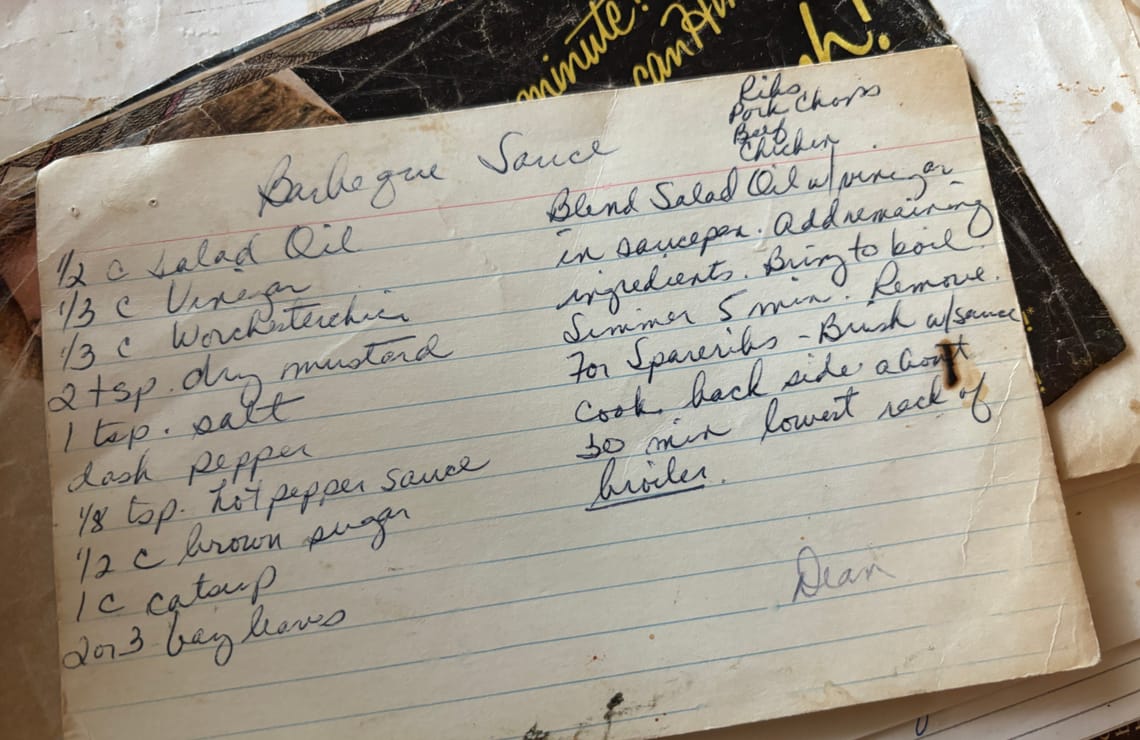 minute!
can
h!
Ribs
Pork Chops
Beef
Chicken
Barbeque Sauce
1/2 c salad Oil
1/3 c Vinegar
1/3 c Worchesterchier
2 tsp. dry mustard
1 tsp. salt
dash pepper
1/8 tsp. hot pepper sauce
1/2 c brown sugar
1 c catsup
2 or 3 bay leaves
Blend Salad Oil w/vinegar
in saucepan. Add remaining
ingredients. Bring to boil
Simmer 5 min. Remove.
For Spareribs - Brush w/sauce
cook back side about
30 min lowest rack of
broiler.
Dean